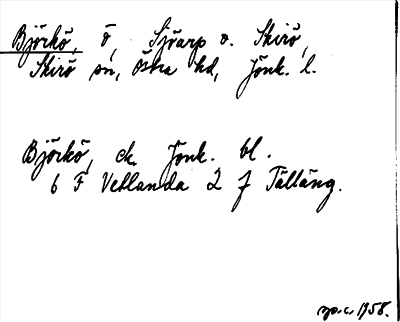 Björkö, ö, Sjöarp o. Skirö,
Skirö sn, Östra hd, Jönk. l.
Björkö, ek. Jönk. bl.
6 F Vetlanda 2 f Tälläng.
1958.